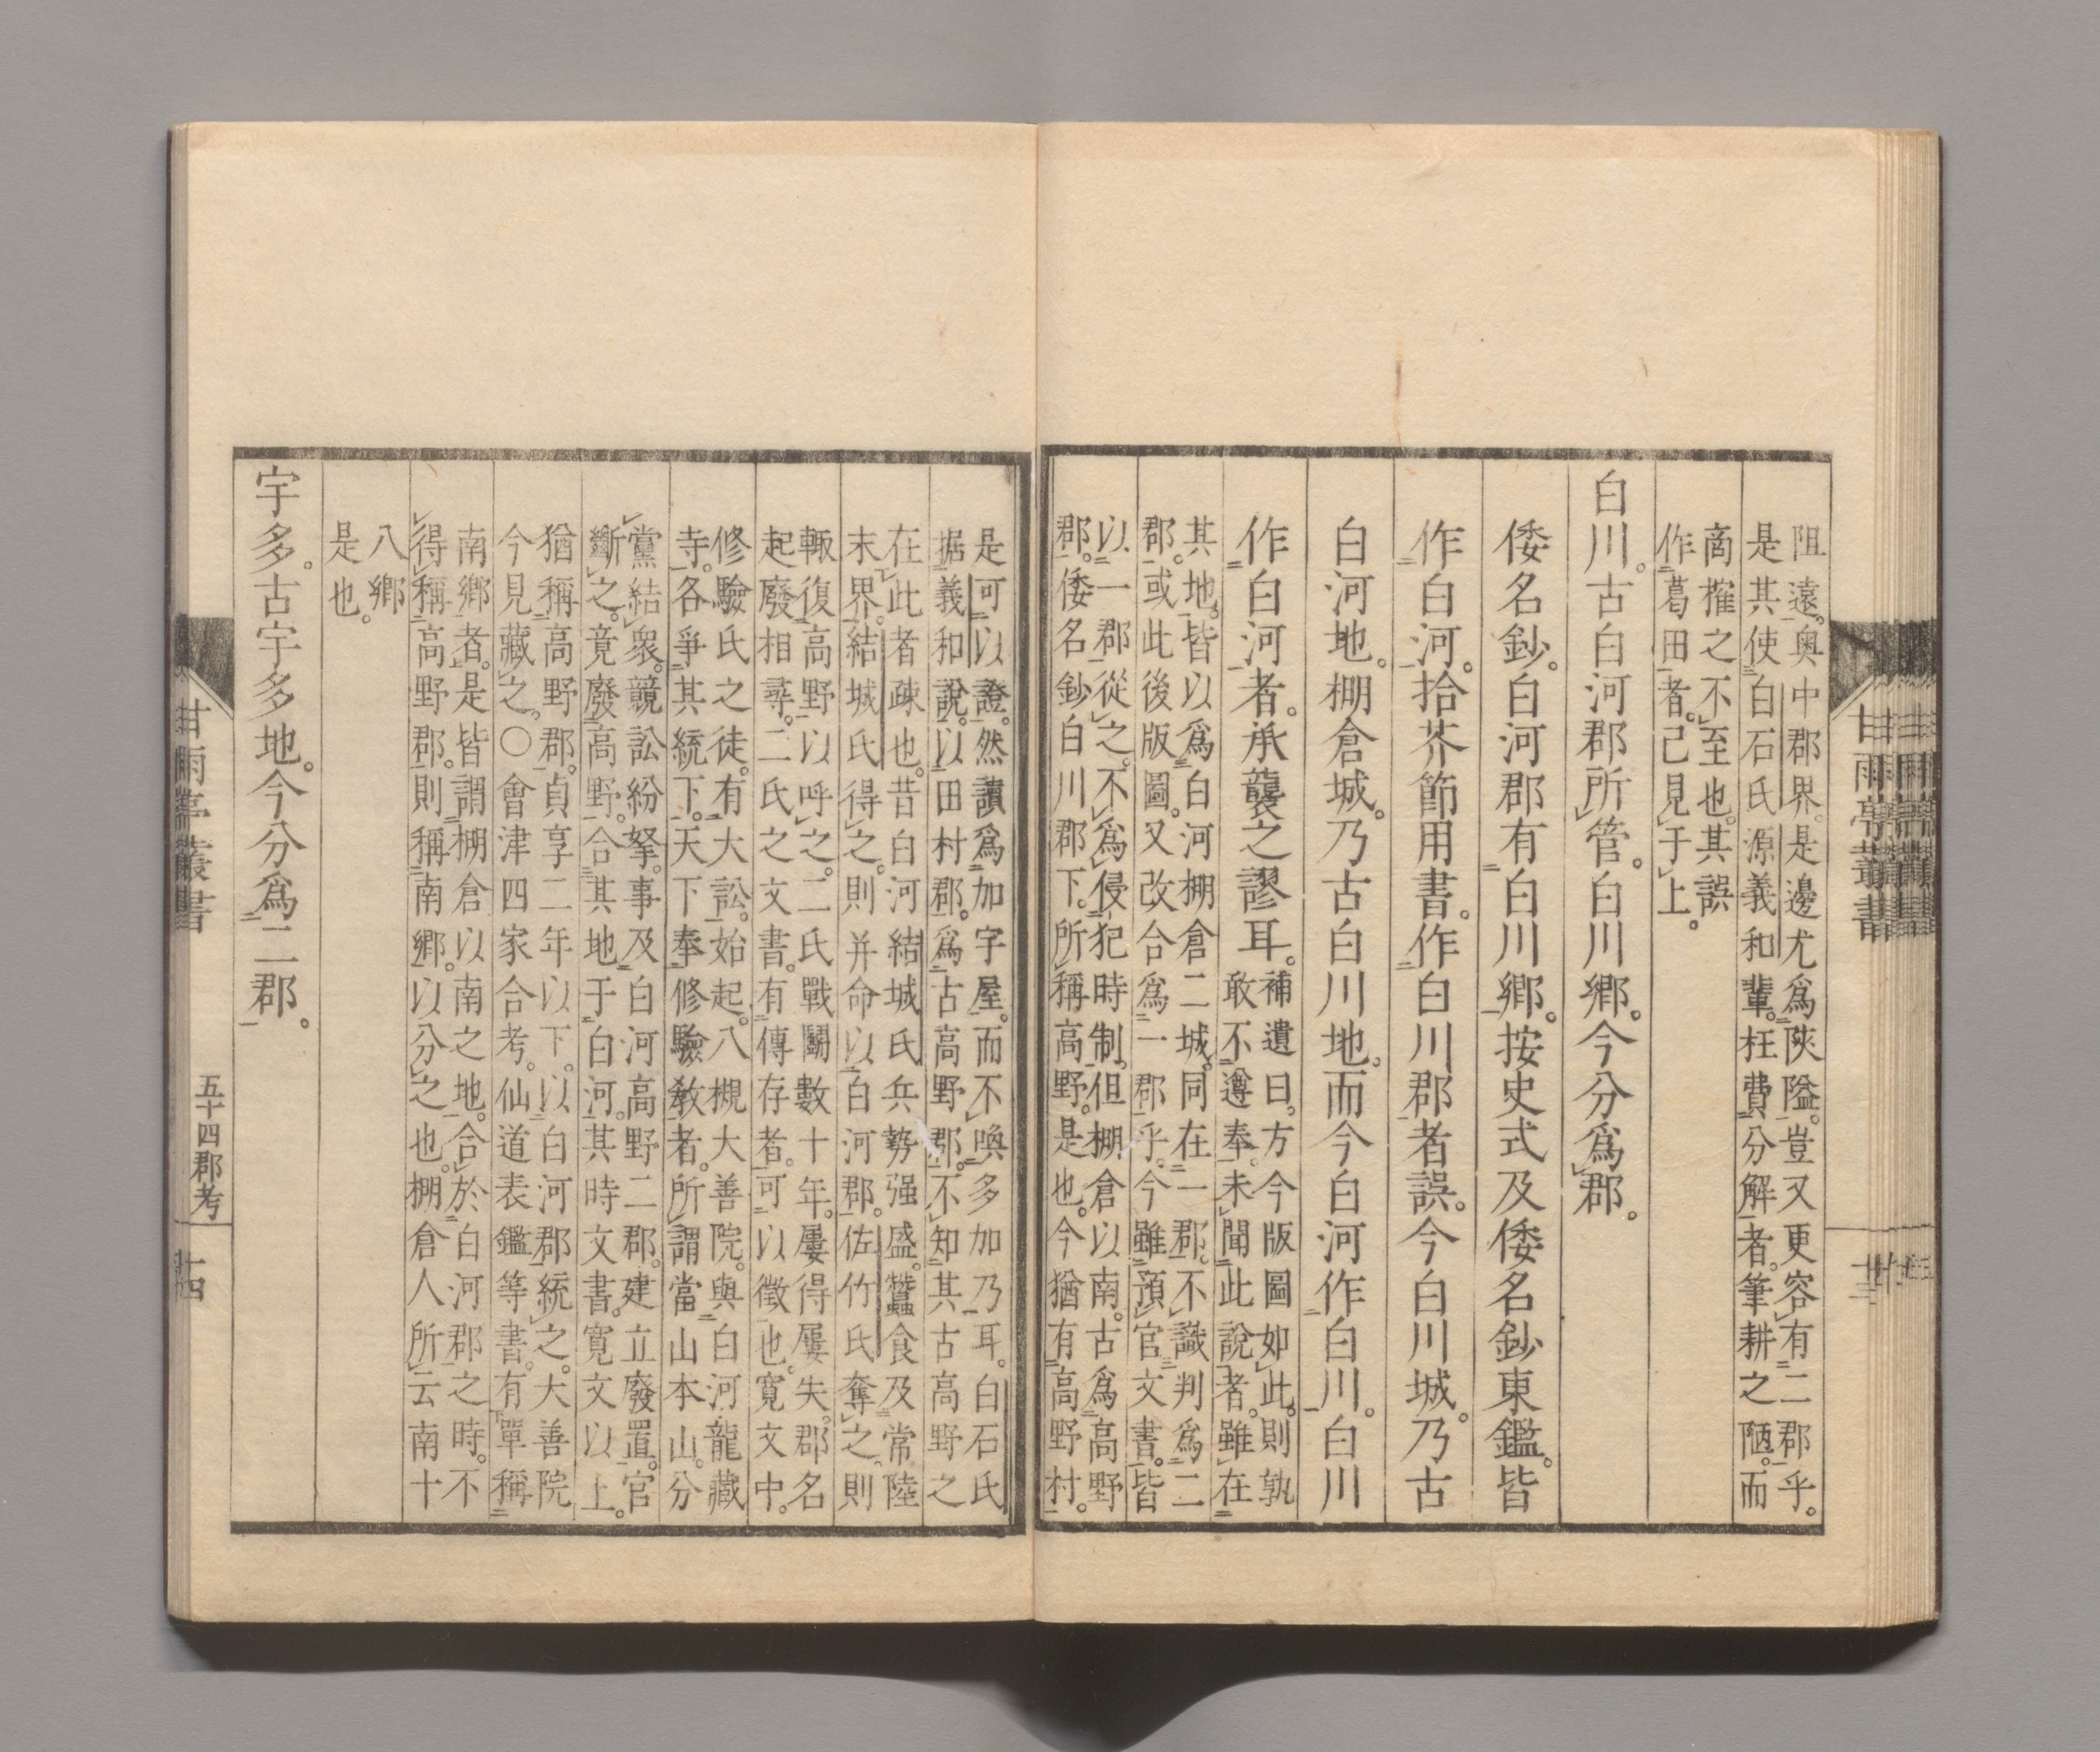 阻遠。奥中郡界。是邊尤爲陝隘。豈又更容有二郡乎。
是其使白石氏源義和輩。枉費分解者。筆耕之陋。而
商搉之不至也。其誤
作葛田者。已見于上。
白川。古白河郡所管。白川鄉。今分爲郡。
倭名鈔。白河郡有白川鄉。按史式及倭名鈔東鑑。皆
作白河。拾芥節用書。作白川郡者誤。今白川城。乃古
白河地。棚倉城。乃古白川地。而今白河作白川。白川
作白河者。承襲之謬耳。
補遺曰。方今版圖如此。則孰
敢不遵奉。未聞此說者。雖在
其地。皆以爲白河棚倉二城。同在一郡。不識判爲二
郡。或此後版圖。又改合爲一郡乎。今雖預官文書。皆
以一郡從之。不爲侵犯時制。但棚倉以南。古爲高野
郡。倭名鈔白川郡下。所稱高野。是也。今猶有高野村。
是可以證。然讀爲加字屋。而不喚多加乃耳。白石氏
据義和說。以田村郡。爲古高野郡。不知其古高野之
在此者疎也。昔白河結城氏兵勢强盛。蠶食及常陸
末界。結城氏得之。則并命以白河郡。佐竹氏奪之。則
輙復高野以呼之。二氏戰鬬數十年。屢得屢失。郡名
起廢相尋。二氏之文書。有傳存者。可以徵也。寬文中。
修驗氏之徒。有大訟。始起。八槻大善院。與白河龍藏
寺。各爭其統下。天下奉修驗教者。所謂當山本山。分
黨結衆。競訟紛拏。事及白河高野二郡。建立廢置。官
斷之。竟廢高野。合其地于白河。其時文書。寬文以上。
猶稱高野郡。貞享二年以下。以白河郡統之。大善院
今見藏之。〇會津四家合考。仙道表鑑等書。有單稱
南鄉者。是皆謂棚倉以南之地。合於白河郡之時。不
得稱高野郡。則稱南鄉。以分之也。棚倉人所云南十
八鄉
是也。
宇多。古宇多地。今分爲二郡。
甘雨亭叢書
五十四郡考
十四
甘雨亭叢書